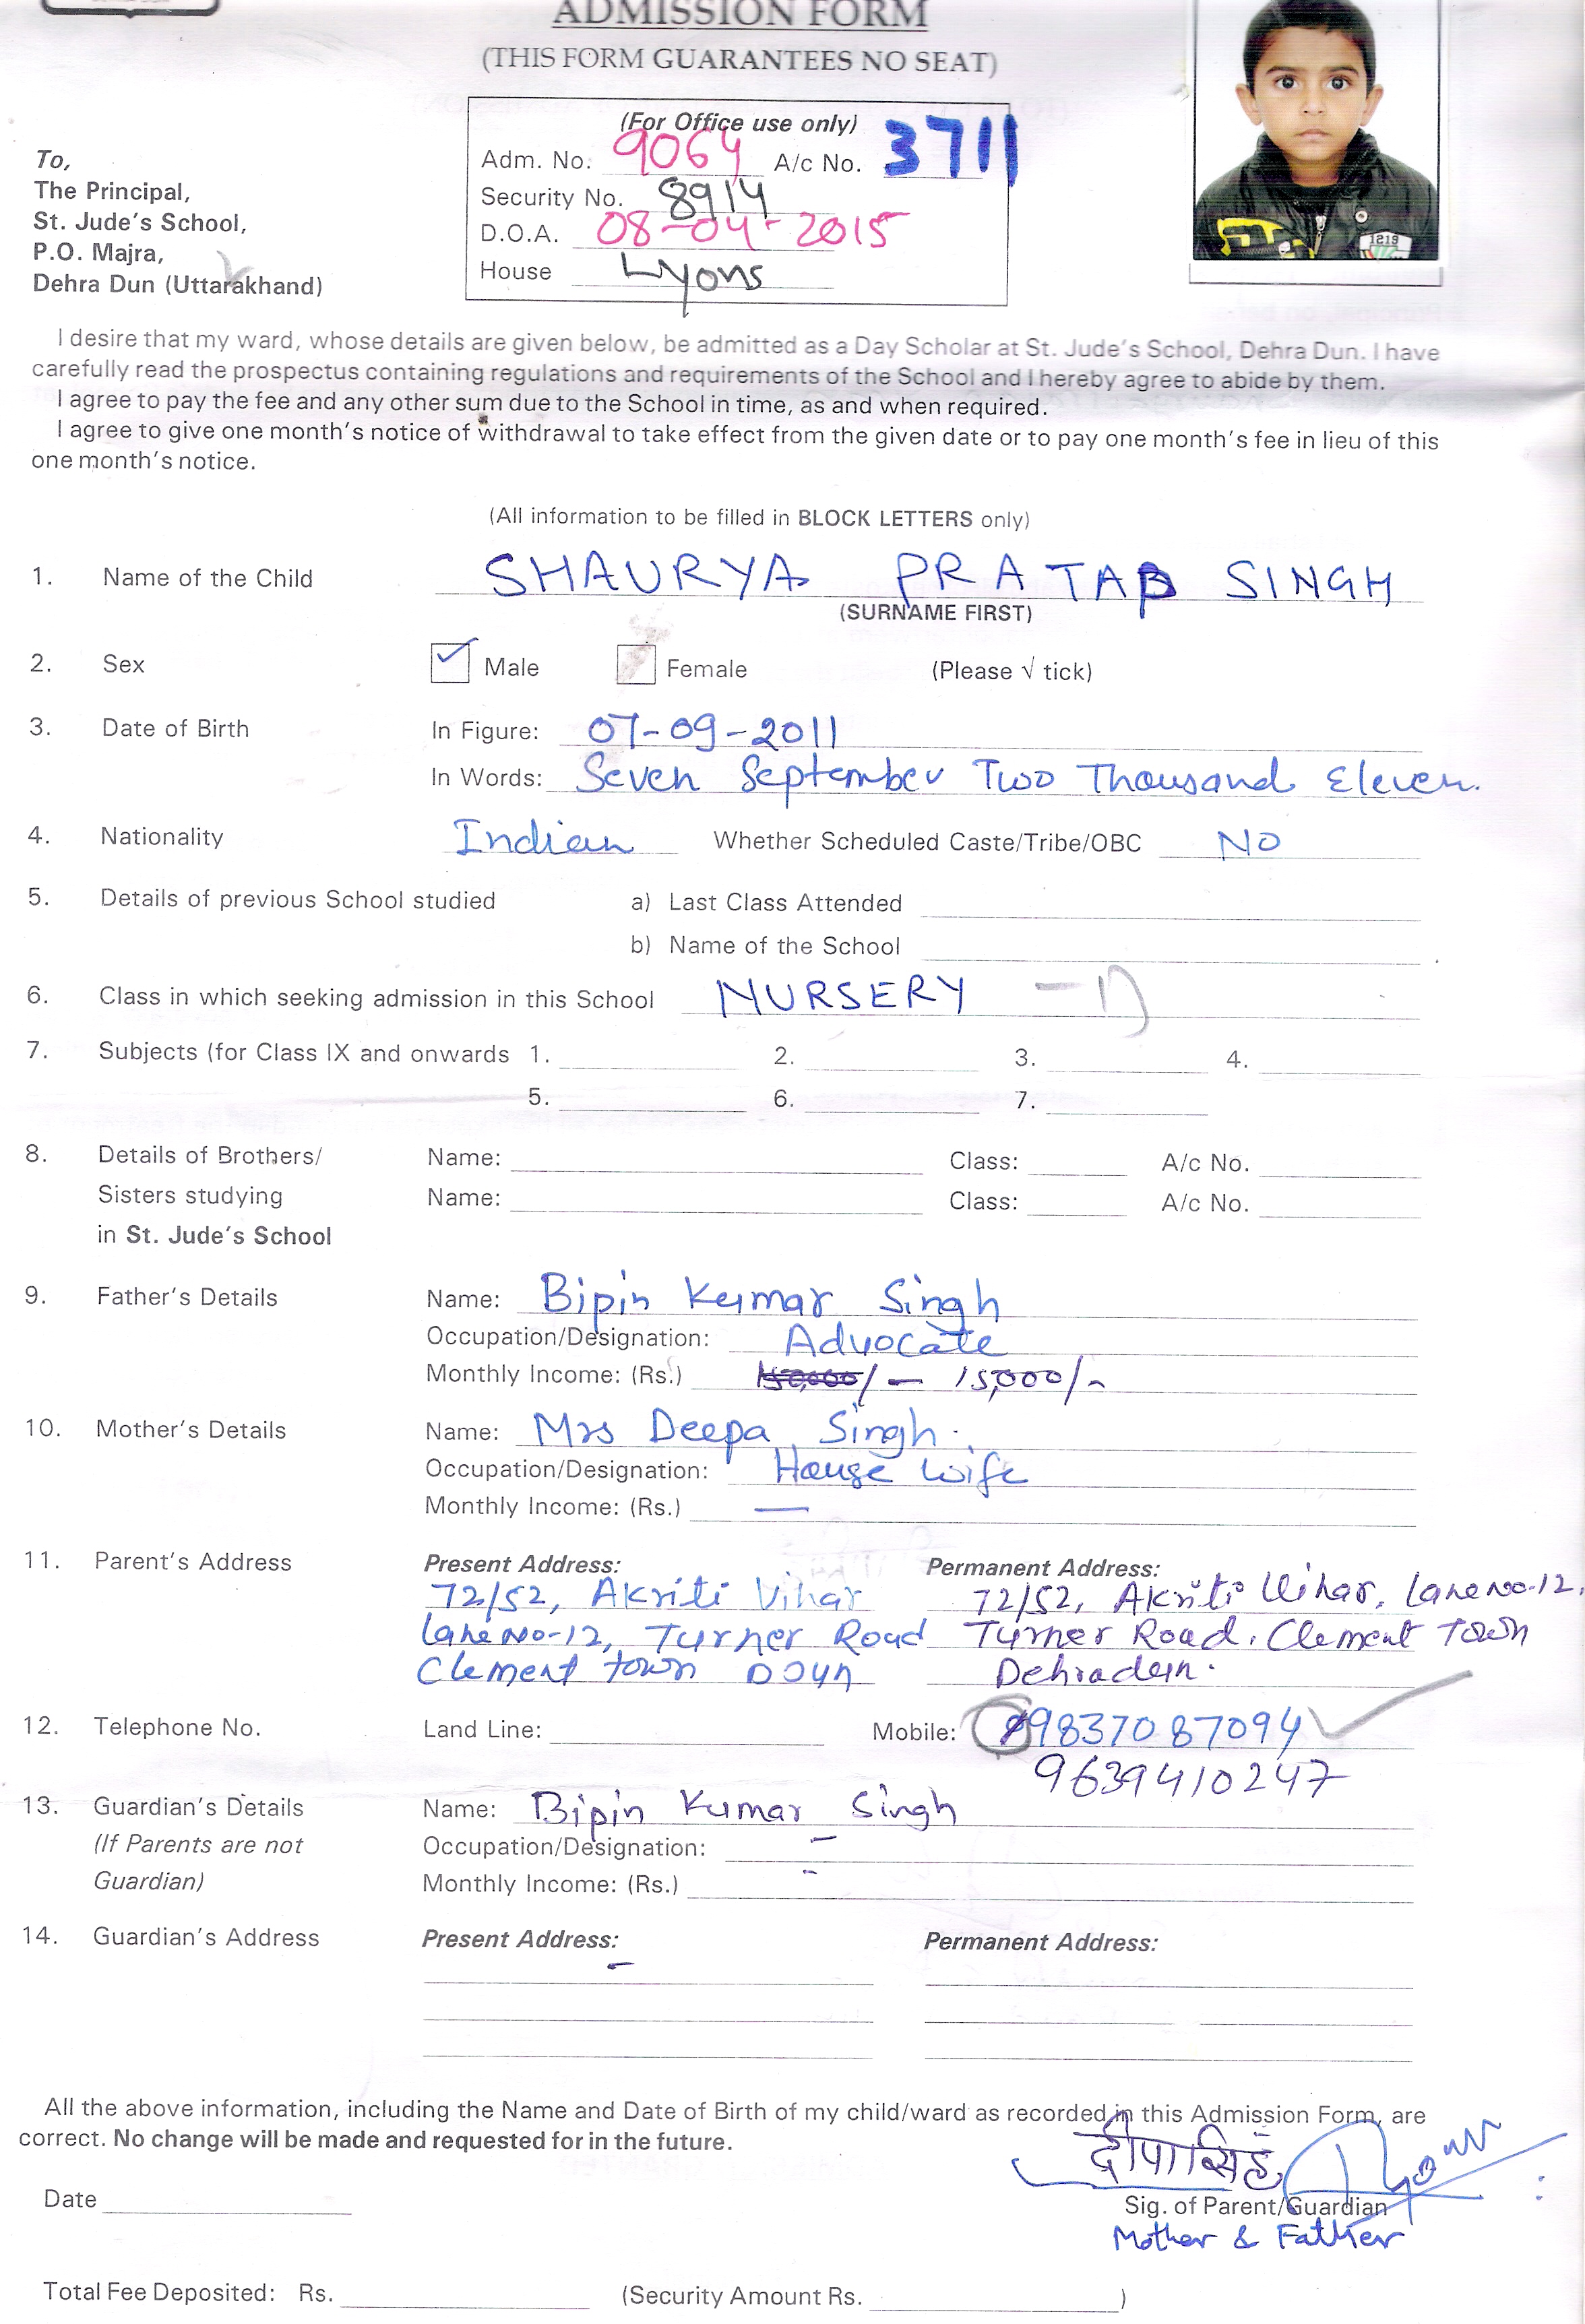 ADMISSION FORM
(THIS FORM GUARANTEES NO SEAT)
(For Office use only)
Adm. No. 9064 A/c No. 3711
Security No. 8914
D.O.A. 08-04-2015
House Lyons
To,
The Principal,
St. Jude's School,
P.O. Majra,
Dehra Dun (Uttarakhand)
1219
I desire that my ward, whose details are given below, be admitted as a Day Scholar at St. Jude's School, Dehra Dun. I have
carefully read the prospectus containing regulations and requirements of the School and I hereby agree to abide by them.
I agree to pay the fee and any other sum due to the School in time, as and when required.
I agree to give one month's notice of withdrawal to take effect from the given date or to pay one month's fee in lieu of this
one month's notice.
(All information to be filled in BLOCK LETTERS only)
1. Name of the Child SHAURYA PRATAP SINGH
(SURNAME FIRST)
2. Sex Male Female (Please √ tick)
3. Date of Birth In Figure: 07-09-2011
In Words: Seven September Two Thousand Eleven.
4. Nationality Indian Whether Scheduled Caste/Tribe/OBC NO
5. Details of previous School studied a) Last Class Attended
b) Name of the School
6. Class in which seeking admission in this School NURSERY
7. Subjects (for Class IX and onwards 1. 2. 3. 4.
5. 6. 7.
8. Details of Brothers/ Name: Class: A/c No.
Sisters studying Name: Class: A/c No.
in St. Jude's School
9. Father's Details Name: Bipin Kumar Singh
Occupation/Designation: Advocate
Monthly Income: (Rs.) 15,000/-
10. Mother's Details Name: Mrs Deepa Singh.
Occupation/Designation: House wife
Monthly Income: (Rs.) —
11. Parent's Address Present Address: Permanent Address:
72/52, Akriti Vihar 72/52, Akriti Vihar, lane no-12,
lane no-12, Turner Road Turner Road, Clement Town
Clement town DDun Dehradun.
12. Telephone No. Land Line: Mobile: 9837087094
9639410247
13. Guardian's Details Name: Bipin Kumar Singh
(If Parents are not Occupation/Designation: -
Guardian) Monthly Income: (Rs.) -
14. Guardian's Address Present Address: Permanent Address:
-
All the above information, including the Name and Date of Birth of my child/ward as recorded in this Admission Form, are
correct. No change will be made and requested for in the future.
दीपा सिंह
Date Sig. of Parent/Guardian
Mother & Father
Total Fee Deposited: Rs. (Security Amount Rs. )